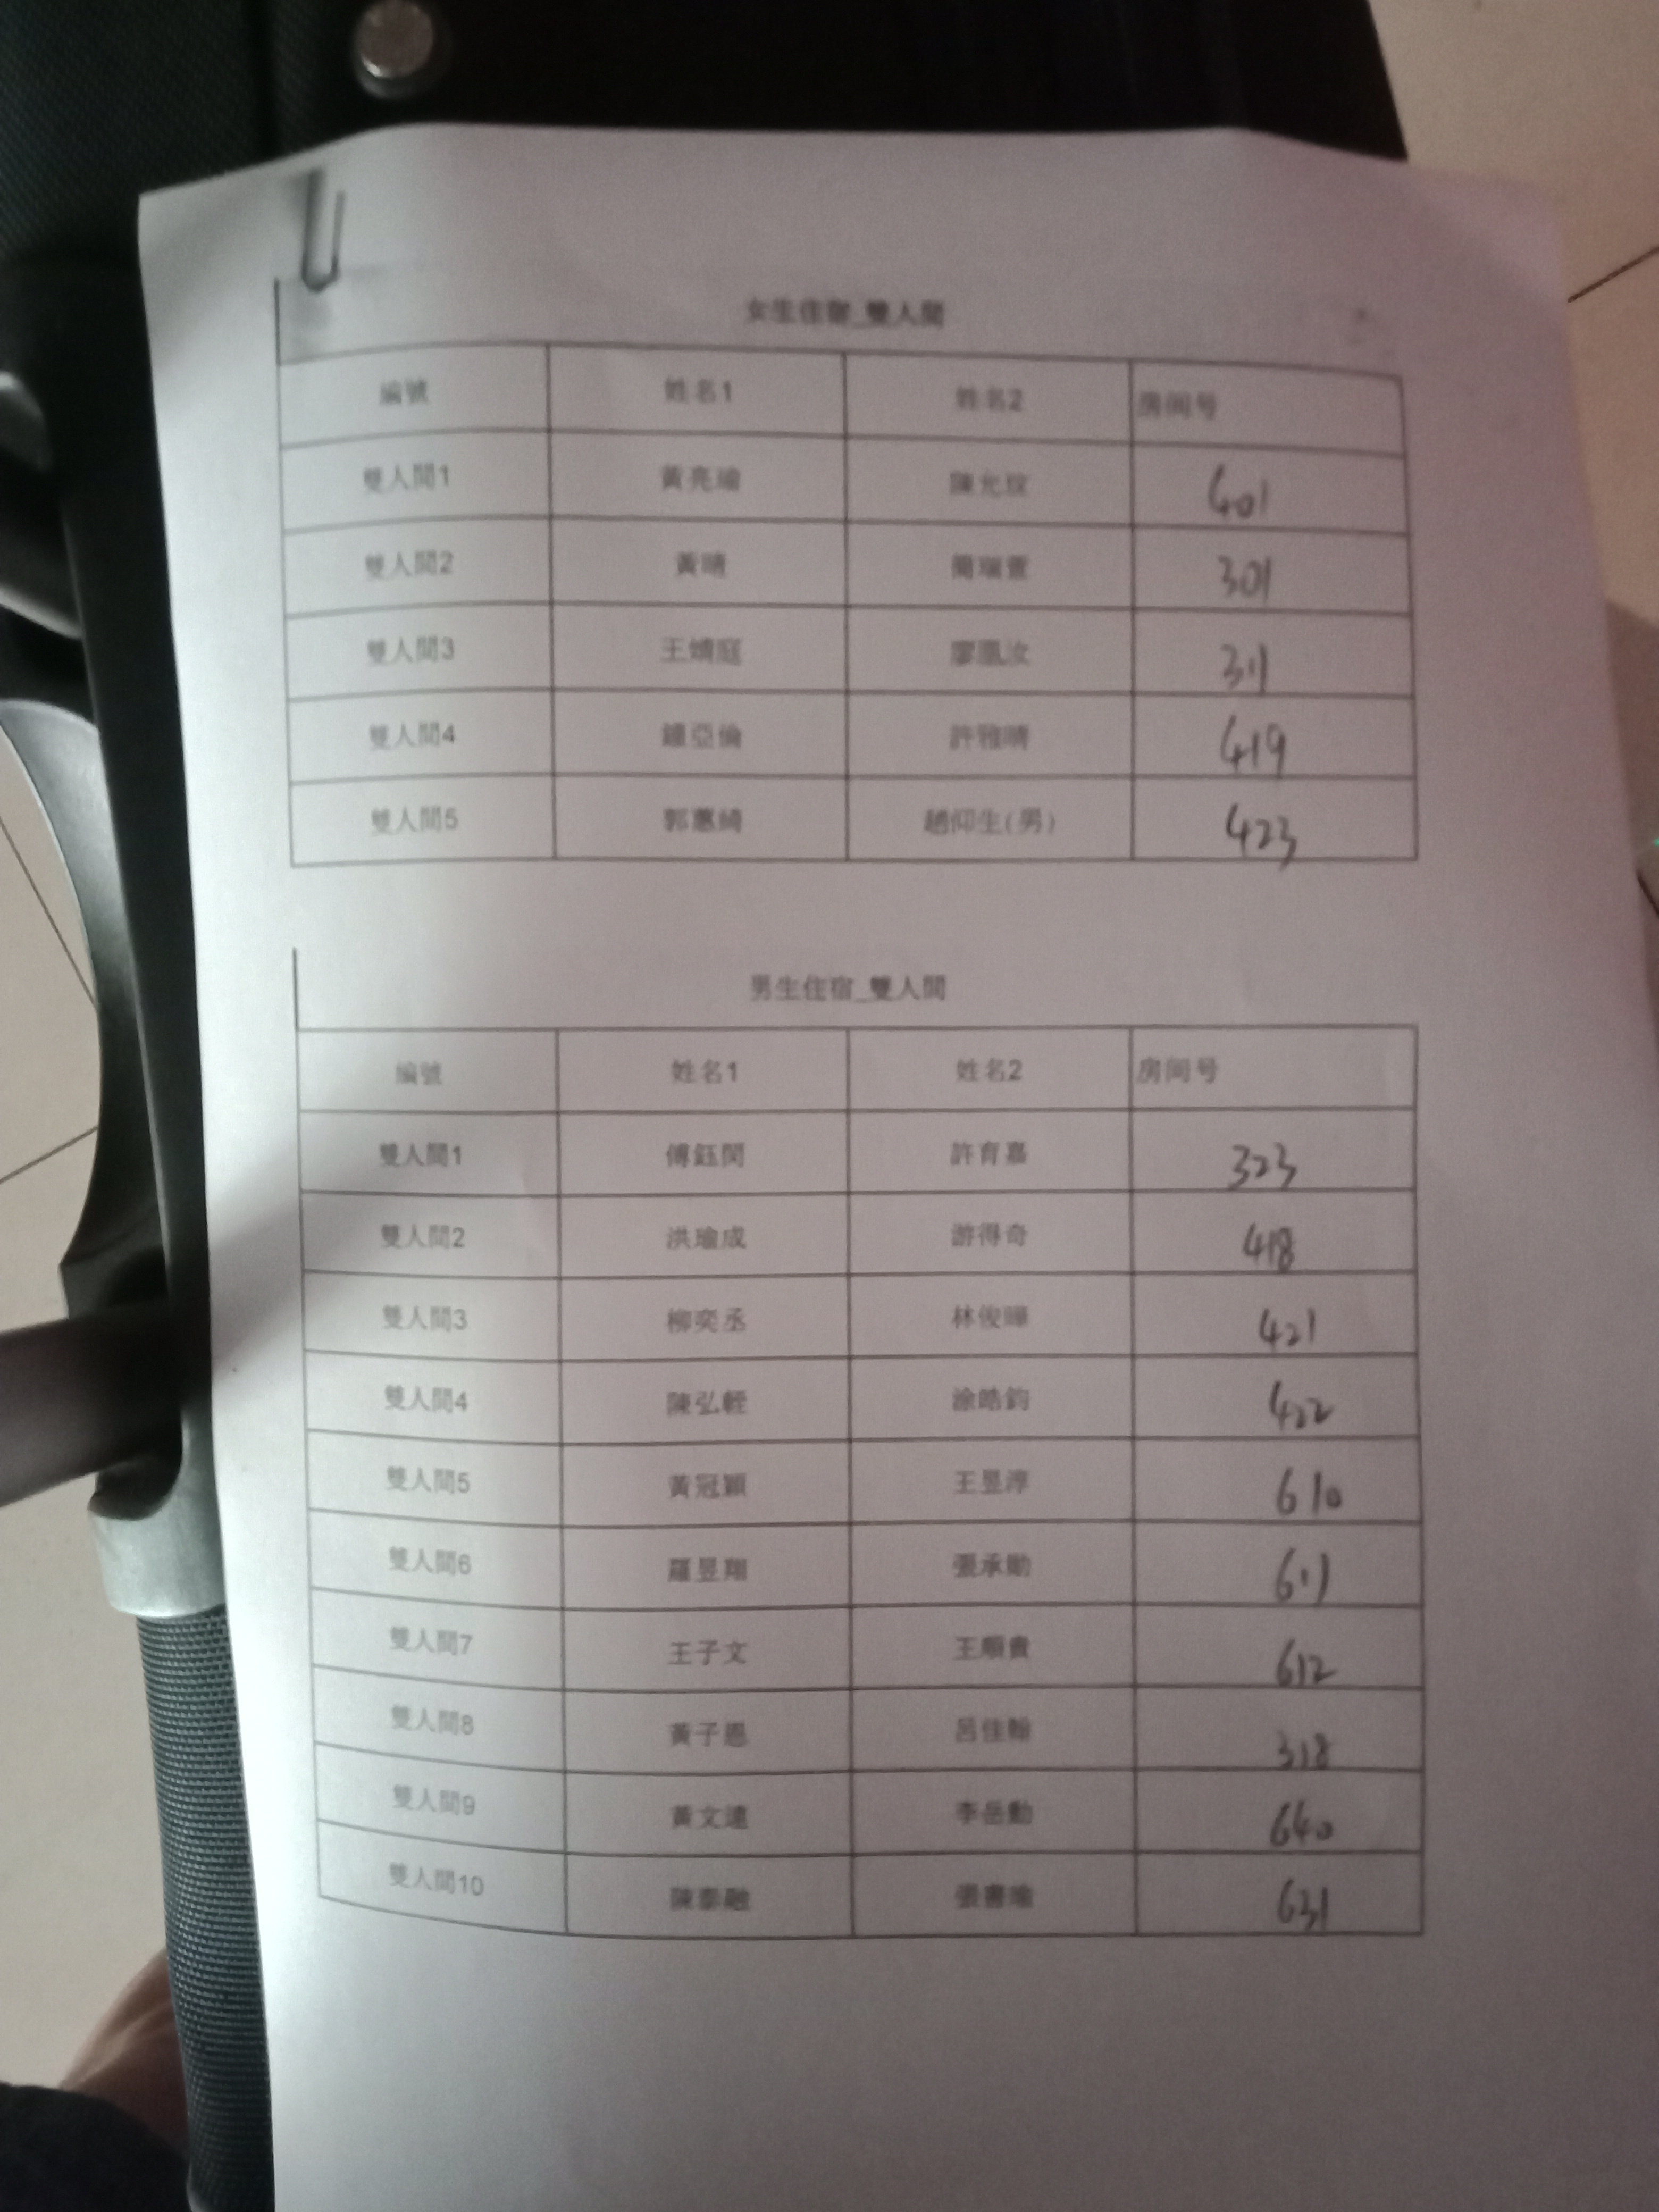 女生住宿_雙人間
編號 姓名1 姓名2 房间号
雙人間1 黃亮瑜 陳允玟 401
雙人間2 黃晴 簡瑞萱 301
雙人間3 王婧庭 廖凰汝 311
雙人間4 鍾亞倫 許雅晴 419
雙人間5 郭蕙綺 趙仰生(男) 423
男生住宿_雙人間
編號 姓名1 姓名2 房间号
雙人間1 傅鈺閔 許育嘉 323
雙人間2 洪瑜成 游得奇 418
雙人間3 柳奕丞 林俊曄 421
雙人間4 陳弘輊 涂皓鈞 422
雙人間5 黃冠穎 王昱淳 610
雙人間6 羅昱翔 張承勛 611
雙人間7 王子文 王順貴 612
雙人間8 黃子恩 呂佳翰 318
雙人間9 黃文遠 李岳勳 640
雙人間10 陳泰融 張書瑜 631